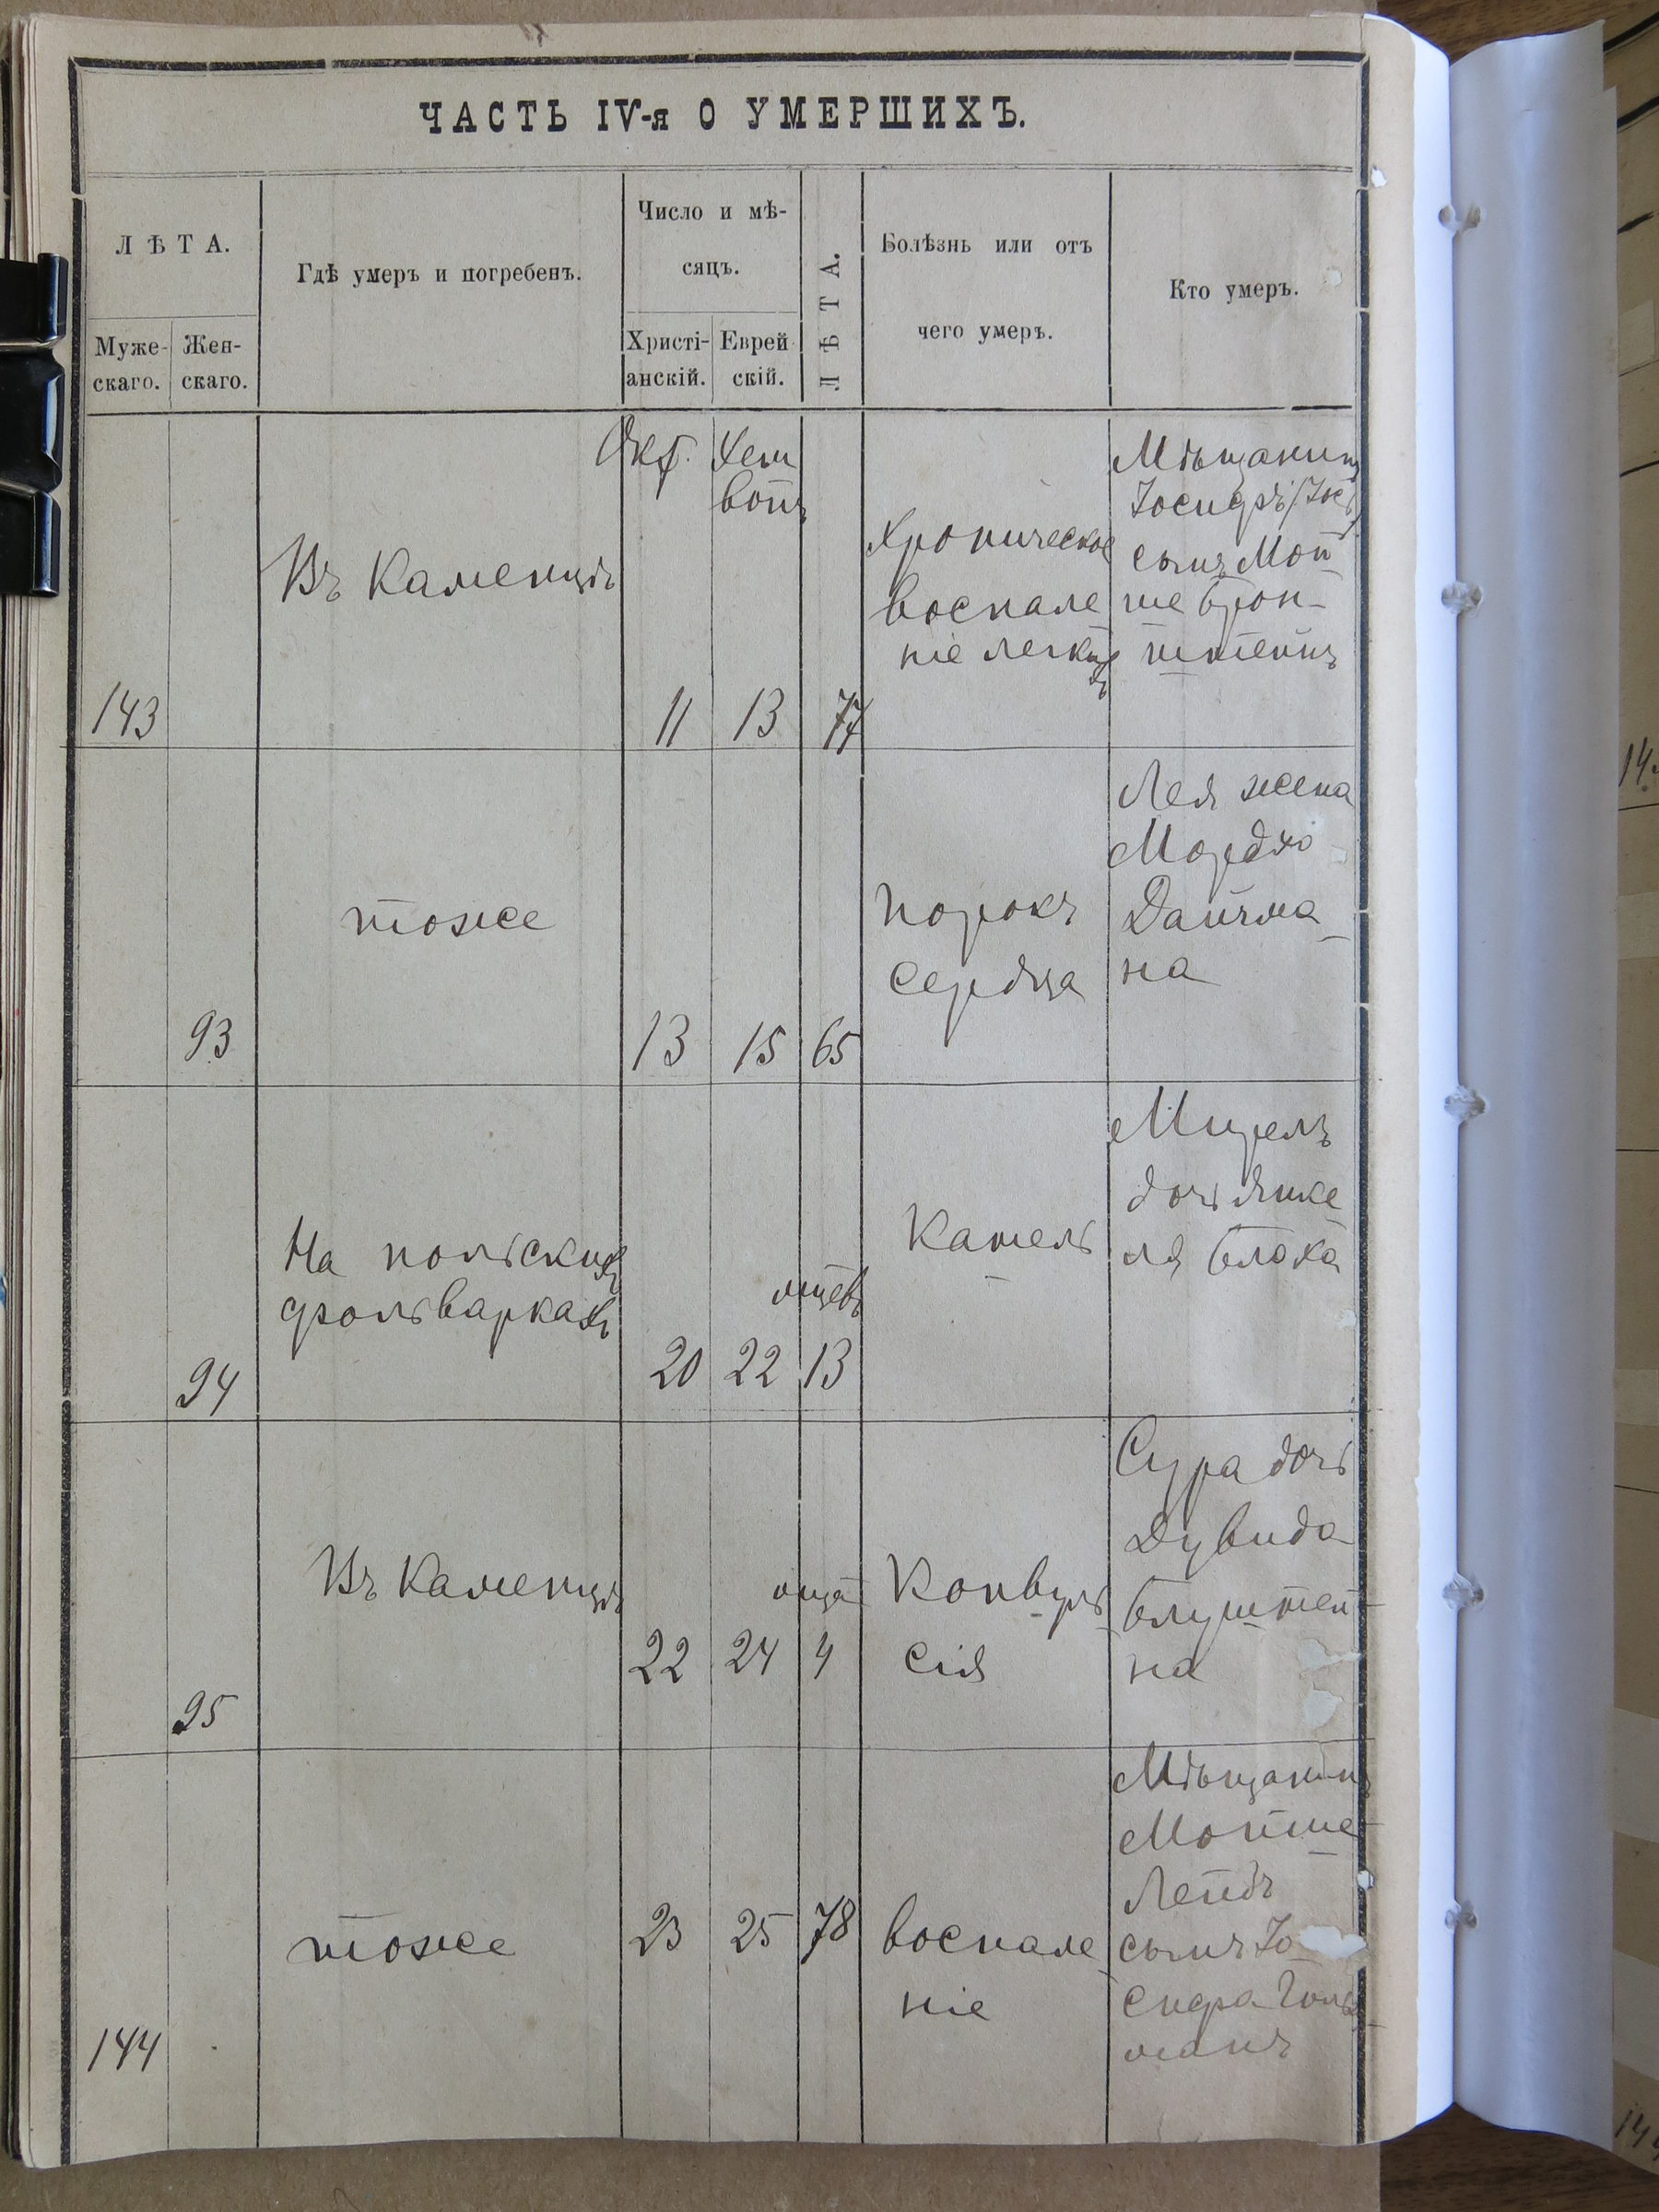 ЧАСТЬ IV-я О УМЕРШИХЪ.
ЛѢТА.
Муже-
скаго.
Жен-
скаго.
Гдѣ умеръ и погребенъ.
Число и мѣ-
сяцъ.
Христі-
анскій.
Еврей
скій.
ЛѢТА.
Болѣзнь или отъ
чего умеръ.
Кто умеръ.
143
Въ Каменцѣ
Окт.
11
Хеш
вонъ
13
77
Хроническое
воспале
ніе легкихъ
Мѣщанинъ
Іосифъ
сынъ Мой
ше Брон-
штейнъ
93
тоже
13
15
65
Порокъ
сердца
Лея жена
Мордко
Дайчма
на
94
На польскихъ
фольваркахъ
20
22
мцевъ
13
Кашель
Мирель
дочь Янке
ля Блоха
95
Въ Каменцѣ
22
24
мца
4
Конвуль
сія
Сура дочь
Дувида
Блуштей
на
144
тоже
23
25
78
Воспале
ніе
Мѣщанинъ
Мойше
Лейбъ
сынъ Іо
сифа
манъ
14